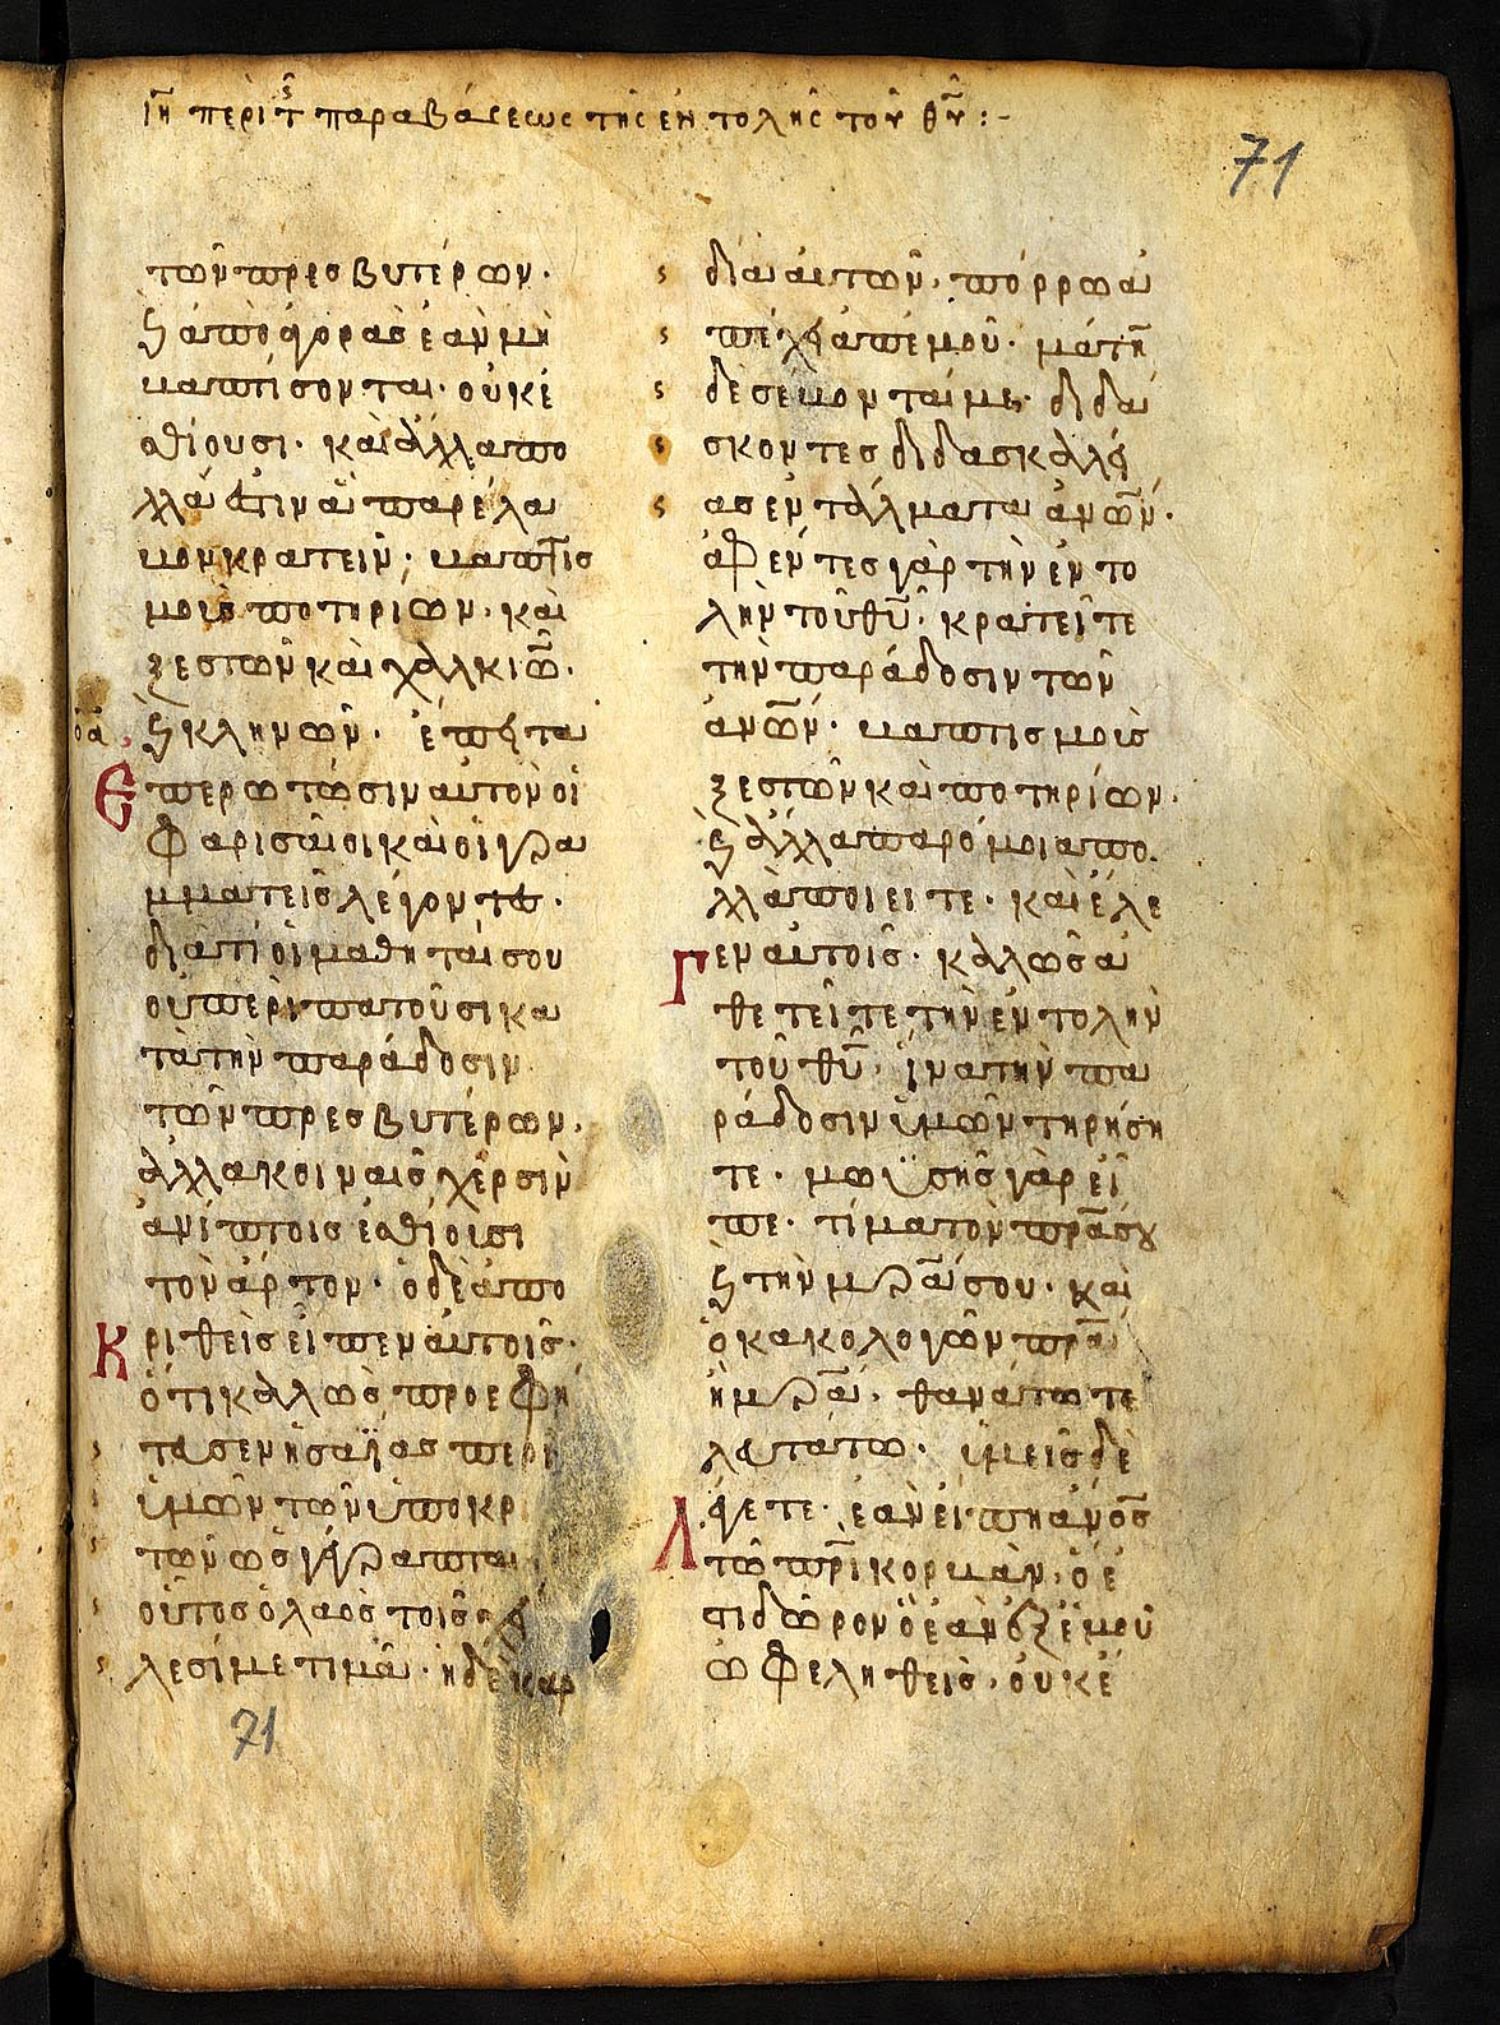 ιη περὶ τς παραβάσεως της εντολης του θυ :-
71
των πρεσβυτέρων·
ϗ ἀπὸ ἀγορας ἐὰν μὴ
βαπτίσονται· οὐκ ἐ
σθίουσι· καὶ ἄλλα πο
λλά ἐστιν ἃ παρέλα
βον κρατειν; βαπτισ
μοὺς ποτηρίων· καὶ
ξεστων καὶ χαλκίω·
οα ϗ κληνων· ἔπειτα
Επερωτωσιν αυτὸν οἱ
Φαρισαιοι καὶ οἱ γρα
μματεις λέγοντες·
διατί οἱ μαθηταί σου
οὐ περιπατουσι κα
τὰ τὴν παράδοσιν
των πρεσβυτέρων·
ἀλλα κοιναις χερσὶν
ἀνίπτοις ἐσθίουσι
τὸν ἄρτον· ὁ δὲ ἀπο
Κριθεὶς εἶπεν αὐτοις·
ὅτι καλως προεφή
τευσεν ησαΐας περὶ
ὑμων των ὑποκρ
των ὡς γέγραπται
οὗτος ὁ λαὸς τοις
λεσί με τιμα· η δὲ καρ
71
δία αυτων· πόρρω ἀ
πέχει ἀπ ἐμου· μάτη
δὲ σέβονταί με· διδά
σκοντες διδασκαλί
ας ἐντάλματα ἀνων·
ἀφέντες γὰρ τὴν ἐντο
λὴν του θυ· κρατειτε
τὴν παράδοσιν των
ἀνων· βαπτισμοὺς
ξεστων καὶ ποτηρίων·
ϗ ἄλλα παρόμοια πο
λλὰ ποιειτε· καὶ ἔλε
Γεν αυτοις· καλως ἀ
θετειτε τὴν ἐντολὴν
του θυ· ἵνα τὴν πα
ράδοσιν ὑμων τηρήση
τε· μωϋσης γὰρ εἶ
πε· τίμα τὸν πρα σου
ϗ τὴν μρα σου· καὶ
ὁ κακολογων πρα
ἢ μρα· θανάτω τε
λευτάτω· ὑμεις δὲ
Λέγετε· ἐὰν εἴπη ἀνος
τω πρι κορβὰν· ὅ ἐ
στι δωρον ὃ ἐὰν ἐξ ἐμου
ὠφεληθεὶς· οὐκ ἐ